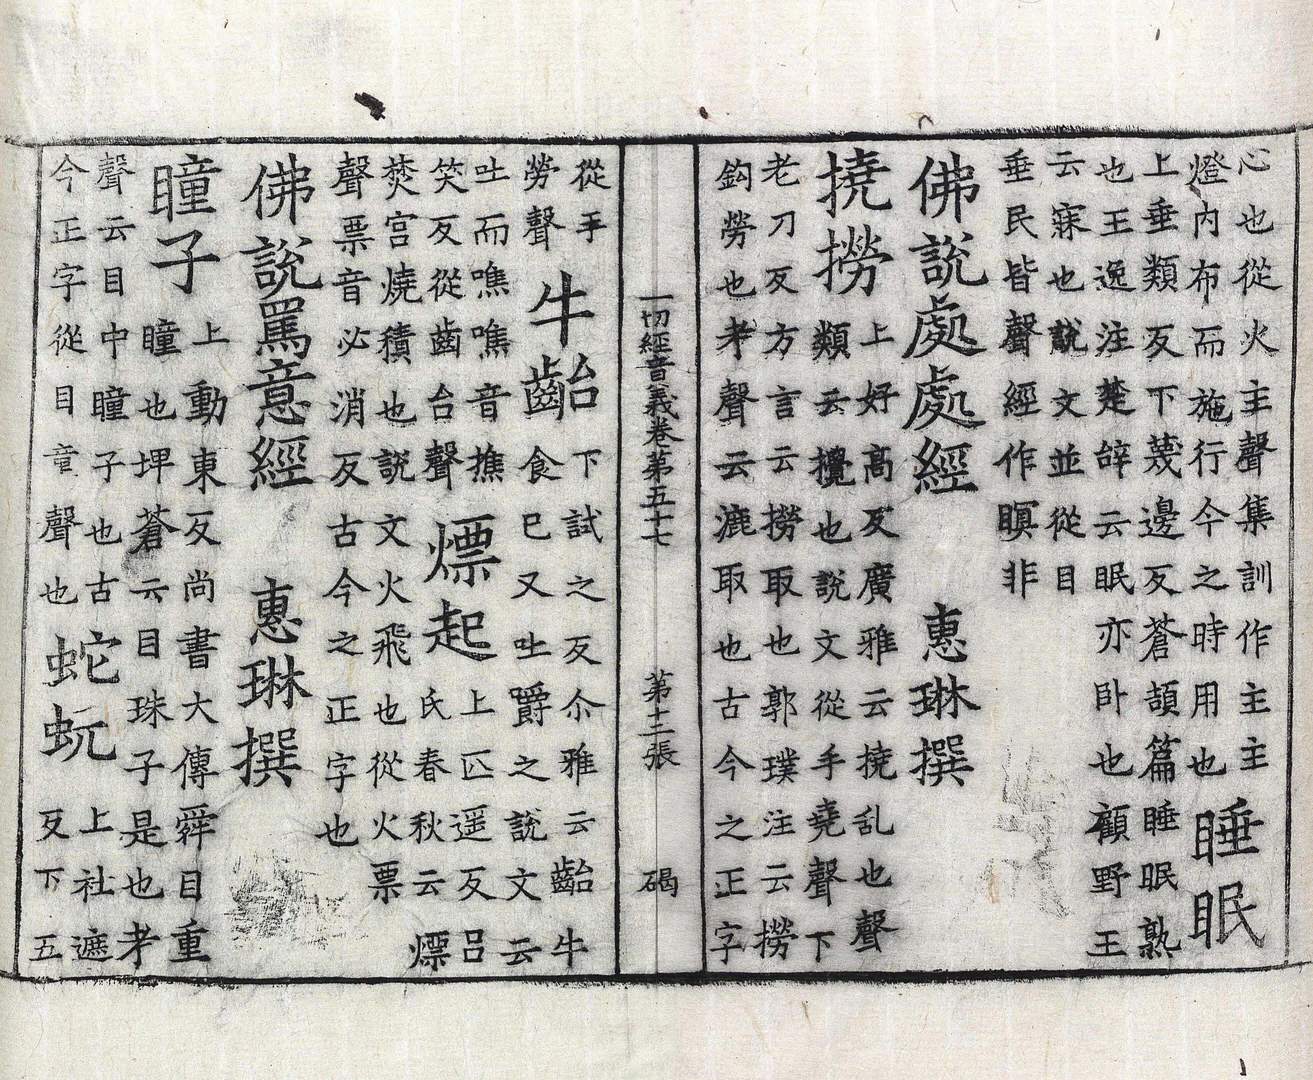 心也從火主聲集訓作主主
燈內布而施行今之時用也睡眠
上垂類反下蔑邊反蒼頡篇睡眠熟
也王逸注楚辞云眠亦卧也顧野王
云寐也說文並從目
垂民皆聲經作瞑非
佛說處處經 惠琳撰
撓撈上好高反廣雅云撓乱也聲
類云攪也說文從手堯聲下
老刀反方言云撈取也郭璞注云撈
鈎勞也考聲云漉取也古今之正字
一切經音義卷第五十七 第十三張 碣
從手
勞聲
牛齝下試之反尒雅云齝牛
食已又吐爵之說文云
吐而噍噍音樵
笑反從齒台聲
熛起上匹遥反吕
氏春秋云熛
焚宫燒積也說文火飛也從火票
聲票音必消反古今之正字也
佛說罵意經 惠琳撰
瞳子上動東反尚書大傳舜目重
瞳也埤蒼云目珠子是也考
聲云目中瞳子也古
今正字從目童聲也
蛇蚖上社遮
反下五